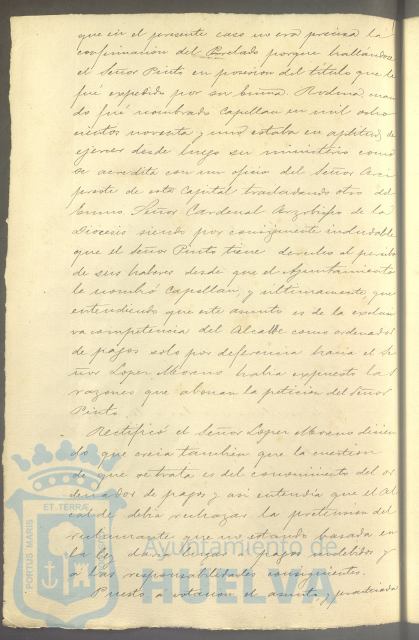 que en el presente caso no era precisa la
confirmación del Prelado porque hallandose
el Señor Pinto en posesion del título que le
fué expedido por su buena
do fué nombrado Capellan en mil ocho
cientos noventa y uno estaba en aptitud de
ejercer desde luego su ministerio como
se acredita con un oficio del Señor Arci
preste de esta Capital trasladando otro del
Emmo. Señor Cardenal Arzobispo de la
Diocesis siendo por consiguiente indudable
que el Señor Pinto tiene derecho al percibo
de sus haberes desde que el Ayuntamiento
le nombró Capellan, y últimamente que
entendiendo que este asunto es de la exclusi
va competencia del Alcalde como ordenador
de pagos solo por deferencia hacia el Se
ñor Lopez Moreno habia expuesto las
razones que abonan la peticion del Señor
Pinto
Rectificó el Señor Lopez Moreno dicien
do que creia tambien que la cuestion
de que se trata es del conocimiento del or
denador de pagos y asi entendia que el Al
calde debia rechazar la pretension del
recurrente que no estando basada en
la ley daria lugar a pagos indebidos y
a las responsabilidades consiguientes.
Puesto a votacion el asunto, y practicada
PORTUS MARIS
ET TERRÆ
Ayuntamiento de
HUELVA